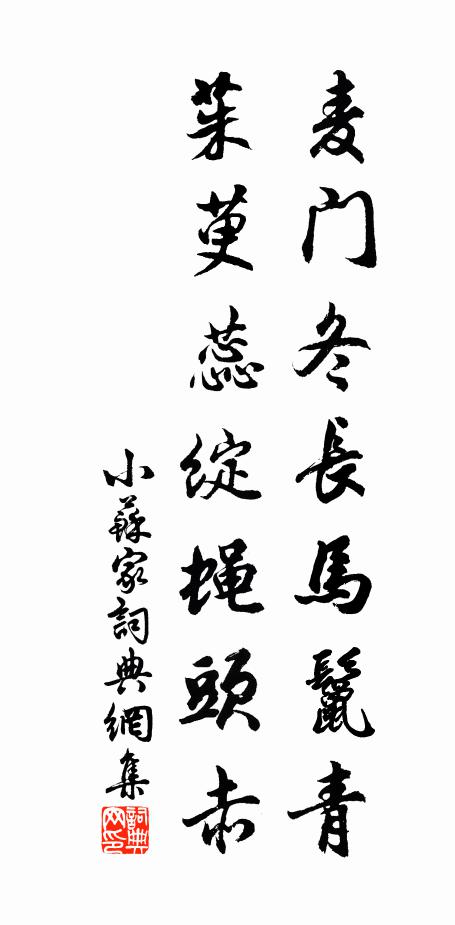 麦门冬长馬鬣青
茱萸蕊綻蝇頭赤
小蘇家詞典網集
詞典
网印